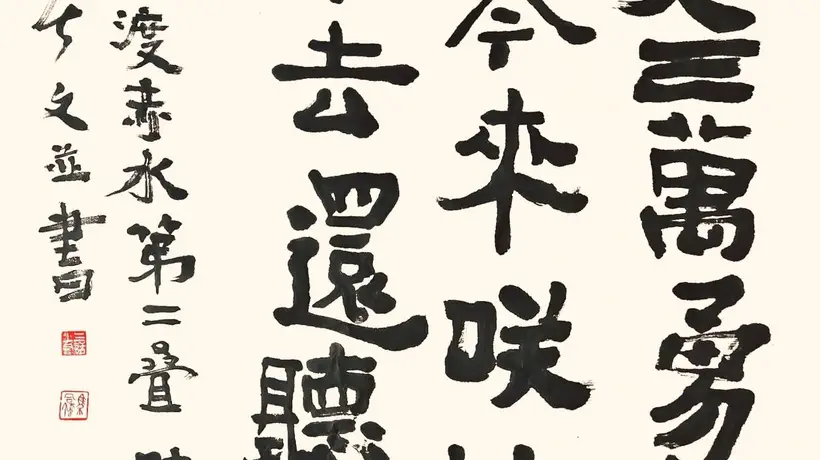 三萬勇
今來咲
去還聽
渡赤水第二疊
文並書